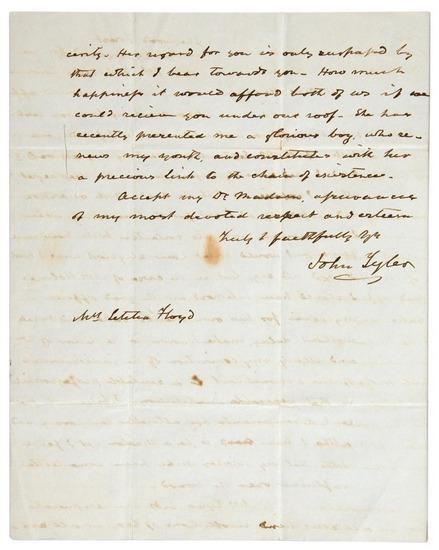 cerity. Her regard for you is only surpassed by
that which I bear towards you. How much
happiness it would afford both of us if we
could receive you under our roof. She has
recently presented me a glorious boy, who re-
news my youth, and constitutes with her
a precious link to the chain of existence.
Accept my Dr Madam, assurances
of my most devoted respect and esteem
Truly & faithfully Yrs
John Tyler
Mrs Letitia Floyd